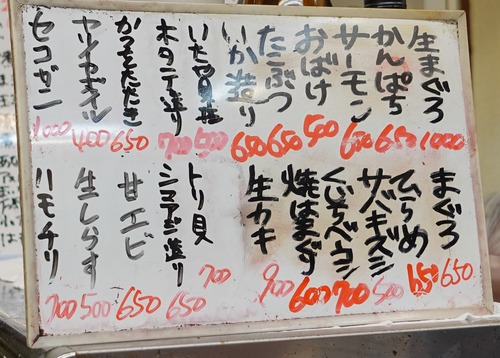 生まぐろ 1000
かんぱち 650
サーモン 650
おばけ 500
たこぶつ 650
いか造り 650
いた貝塩 500
ホタテ造り 700
かつをたたき 650
ヤリイカゲソ 400
セコガニ 1000
まぐろ 650
ひらめ 650
サバキズシ 500
くじらベーコン 700
焼はまぐり 600
生カキ 900
トリ貝 700
シマアジ造り 650
甘エビ 650
生しらす 500
ハモチリ 700